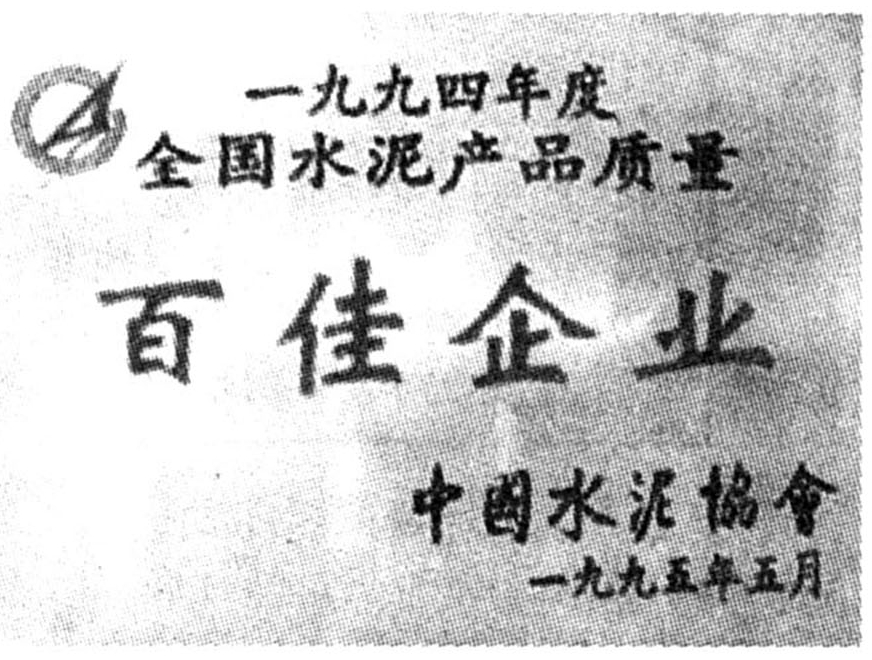 一九九四年度
全国水泥产品质量
百佳企业
中國水泥協會
一九九五年五月